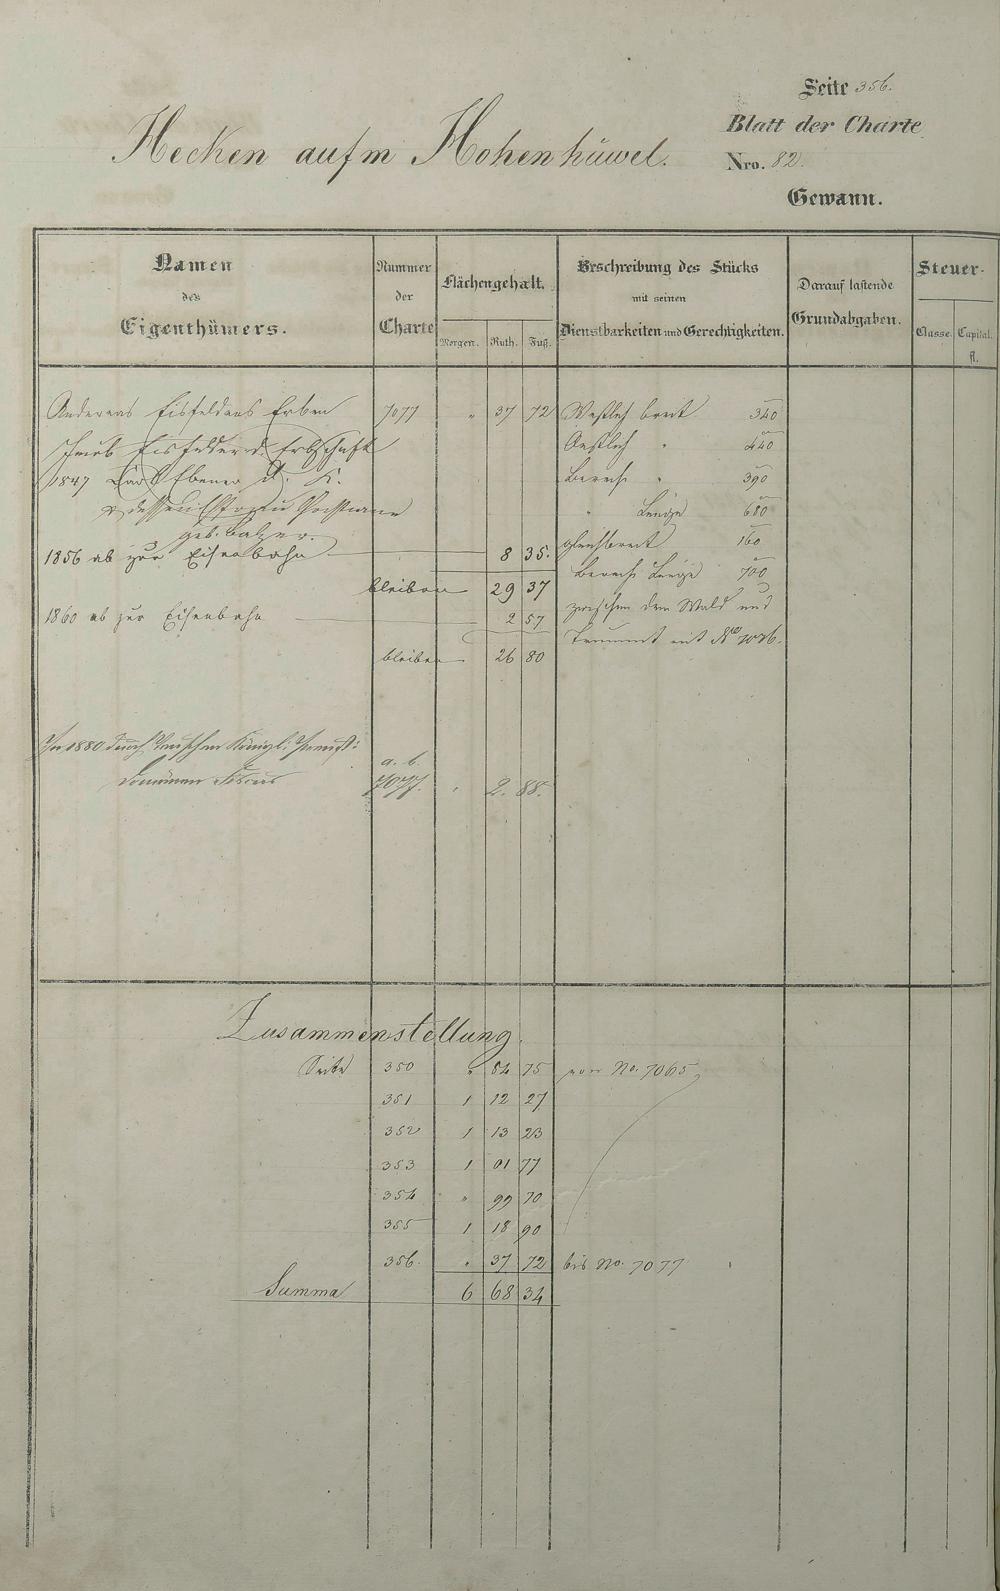 Seite 356.
Blatt der Charte
Nro. 82.
Gewann.
Hecken aufm Hohenhüwel.
Namen des Eigenthümers.
Nummer der Charte
Flächengehalt.
Morgen. Ruth. Fuß.
Beschreibung des Stücks mit seinen Dienstbarkeiten und Gerechtigkeiten.
Darauf lastende Grundabgaben.
Steuer-
Classe. Capital. fl.
Andereas Eisfelders Erben 7077 " 37 72 Westlich breit 340
Jacob Eisfelder d. Erbschaft Oestlich " 440
1847 Carl Ebener d. K. " 390
& dessen " Länge 680
geb. Balzer. gleichbreit 160
1856 ab zur Eisenbahn 8 35.
Länge 700
bleiben 29 37
zwischen dem Wald und
1860 ab zur Eisenbahn 2 57
mit No 7076.
bleiben 26 80
In 1880 durch Königl: Preuß:
Domänen Fiscus
a. b.
7077. " 2. 88.
Zusammenstellung.
Seite 350 " 84 75 von No. 7065,
351 1 12 27
352 1 13 23
353 1 01 77
354 " 99 70
355 1 18 90
356. " 37 72 bis No. 7077
Summa 6 68 34